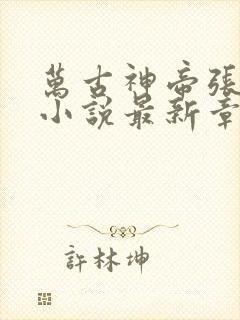 萬古神帝張
小說最新章
許林坤